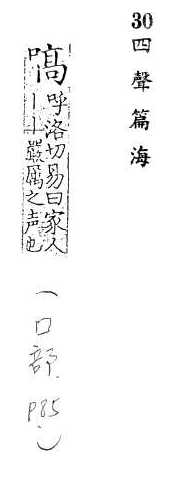 30四聲篇海
嗃
呼洛切易曰家人
丨丨嚴厲之声也
(口部 P85)